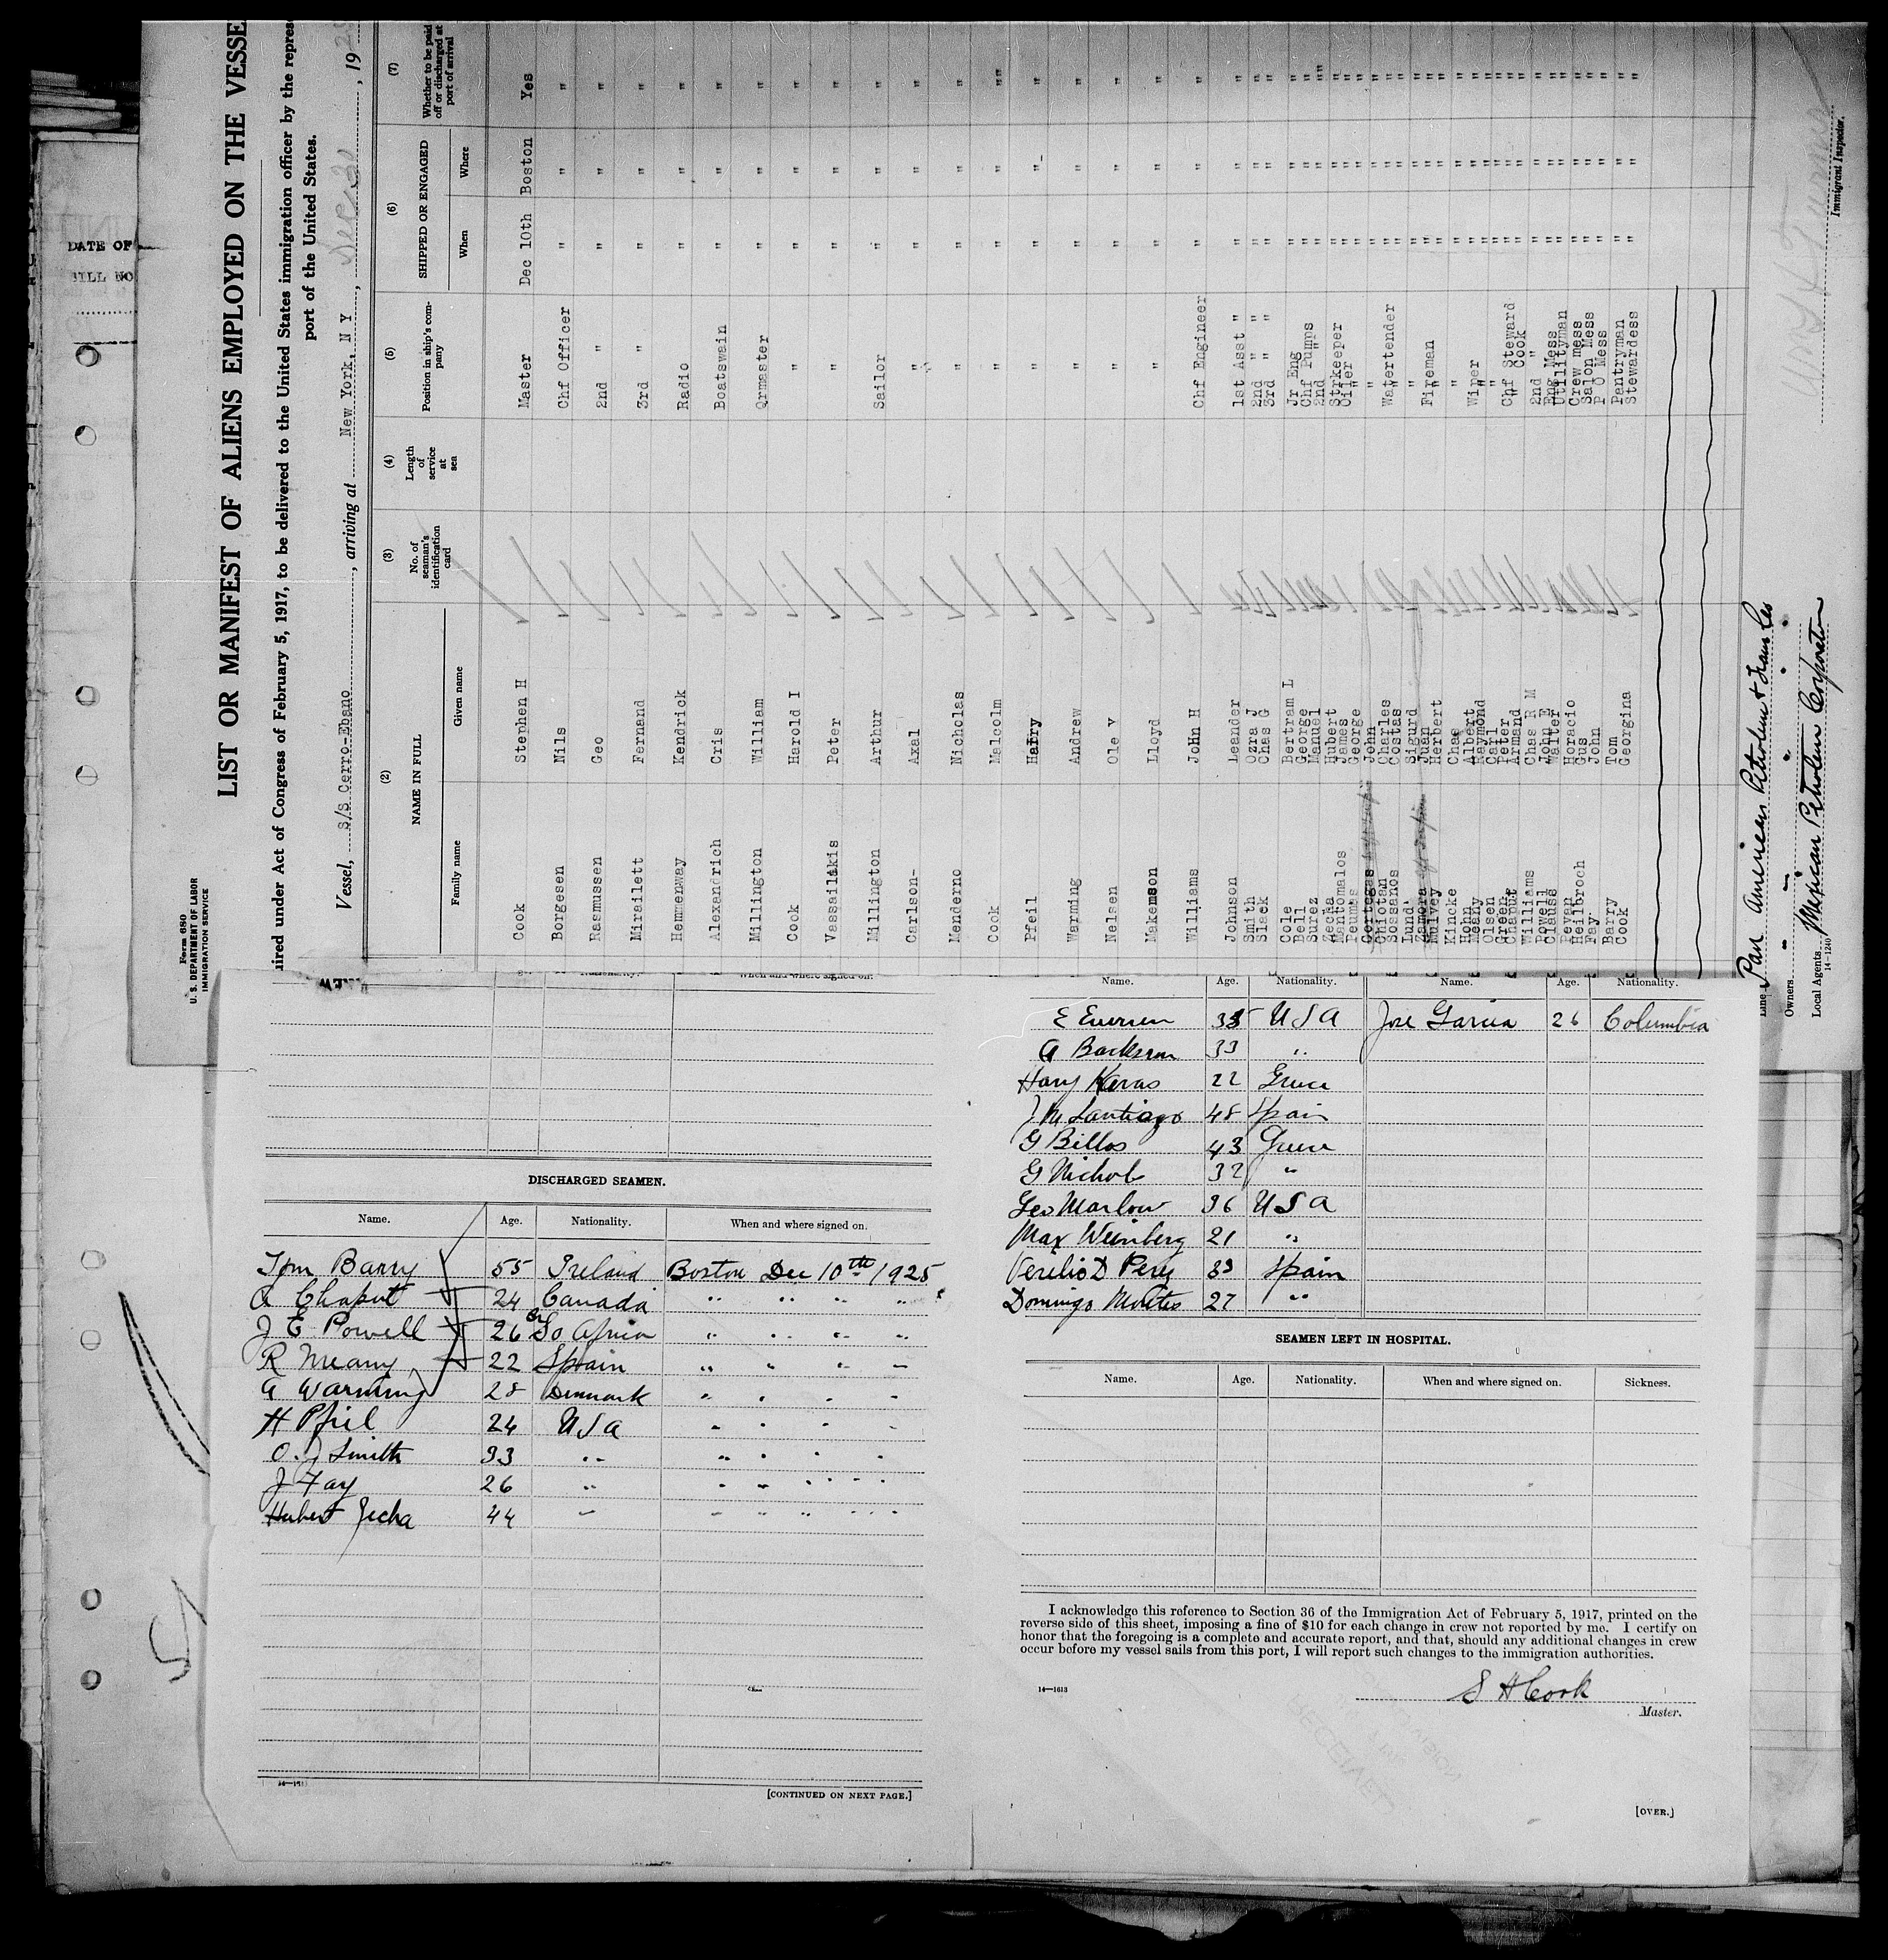 Form 680
U. S. DEPARTMENT OF LABOR
IMMIGRATION SERVICE
LIST OR MANIFEST OF ALIENS EMPLOYED ON THE VESSE
uired under Act of Congress of February 5, 1917, to be delivered to the United States immigration officer by the repres
port of the United States.
Vessel, S/S Cerro-Ebano, arriving at New York, N Y, Dec 30, 192
(2) (3) (4) (5) (6) (7)
NAME IN FULL No. of seaman's identification card Length of service at sea Position in ship's company SHIPPED OR ENGAGED Whether to be paid off or discharged at port of arrival
Family name Given name When Where
Cook Stephen H Master Dec 10th Boston Yes
Borgesen Nils Chf Officer " " "
Rasmussen Geo 2nd " " " "
Mirailett Fernand 3rd " " " "
Hemmenway Kendrick Radio " " "
Alexanrich Cris Boatswain " " "
Millington William Qrmaster " " "
Cook Harold I " " " "
Vassailakis Peter " " " "
Millington Arthur Sailor " " "
Carlson- Axal " " " "
Menderno Nicholas " " " "
Cook Malcolm " " " "
Pfeil Harry " " " "
Warming Andrew " " " "
Nelsen Ole V " " " "
Makemson Lloyd " " " "
Williams John H Chf Engineer " " "
Johnson Leander 1st Asst " " " "
Smith Ozra J 2nd " " " " "
Slack Chas G 3rd " " " " "
Cole Bertram L Jr Eng " " "
Bell George Chf Pumps " " "
Surez Manuel 2nd " " " "
Zecha Hubert Strkeeper " " "
Mantomalos James Oiler " " "
Peumas George " " " "
Gortegas John " " " "
Chiotan Charles Watertender " " "
Sossanos Costas " " " "
Lund Sigurd " " " "
Zamora Juan Fireman " " "
Mulvey Herbert " " " "
Kincke Chas " " " "
Hohn Albert Wiper " " "
Meany Raymond " " " "
Olsen Carl " " " "
Green Peter Chf Steward " " "
Chaput Armand " Cook " " "
Williams Chas R M 2nd " " " "
Powell John E Eng Mess " " "
Clauss Walter Utilityman " " "
Pevan Horacio Crew mess " " "
Heilbroch Gus Salon Mess " " "
Fay John P O Mess " " "
Barry Tom Pantryman " " "
Cook Georgina Stewardess " " "
Line Pan American Petroleum & Trans Co
Owners " " " "
Local Agents Mexican Petroleum Corporation
14-1240
Immigrant Inspector.
DATE OF
BILL NO
Nationality. When and where signed on.
DISCHARGED SEAMEN.
Name. Age. Nationality. When and where signed on.
Tom Barry 55 Ireland Boston Dec 10th 1925
A Chaput 24 Canada " " " "
J E Powell 26 So Africa " " " "
R Meany 22 Spain " " " "
A Warming 28 Denmark " " " "
H Pfeil 24 USA " " " "
O. J Smith 33 " " " " "
J Fay 26 " " " " "
Hubert Zecha 44 " " " " "
14—1613
[CONTINUED ON NEXT PAGE.]
Name. Age. Nationality. Name. Age. Nationality.
E Eversen 35 USA Jose Garcia 26 Columbia
A Backsrom 33 "
Harry Karas 22 Greece
J M Santiago 48 Spain
G Billos 43 Greece
G Nichols 32 "
Geo Marlow 36 USA
Max Weinberg 21 "
D Perez 39 Spain
Domingo Montes 27 "
SEAMEN LEFT IN HOSPITAL.
Name. Age. Nationality. When and where signed on. Sickness.
I acknowledge this reference to Section 36 of the Immigration Act of February 5, 1917, printed on the
reverse side of this sheet, imposing a fine of $10 for each change in crew not reported by me. I certify on
honor that the foregoing is a complete and accurate report, and that, should any additional changes in crew
occur before my vessel sails from this port, I will report such changes to the immigration authorities.
14—1613
S H Cook
Master.
[OVER.]